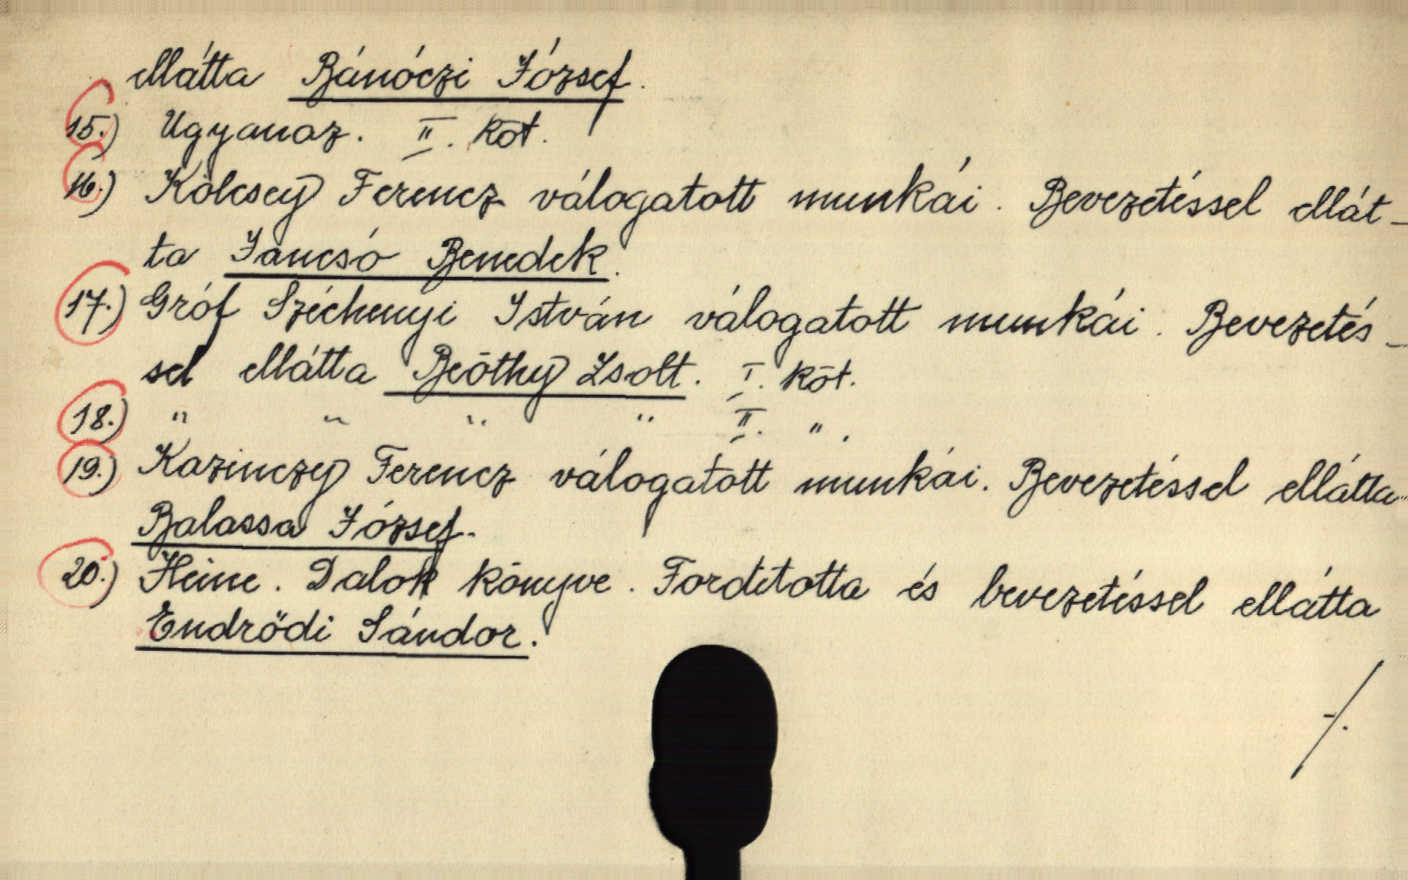 ellátta Bánóczi József.
15.) Ugyanaz. II. köt.
16.) Kölcsey Ferencz válogatott munkái. Bevezetéssel ellát-
ta Jancsó Benedek.
17.) Gróf Széchenyi István válogatott munkái. Bevezetés-
sel ellátta Beöthy Zsolt. I. köt.
18.) " " " " II. " .
19.) Kazinczy Ferencz válogatott munkái. Bevezetéssel ellátta
Balassa József.
20.) Heine. Dalok könyve. Fordította és bevezetéssel ellátta
Endrődi Sándor.
-/.